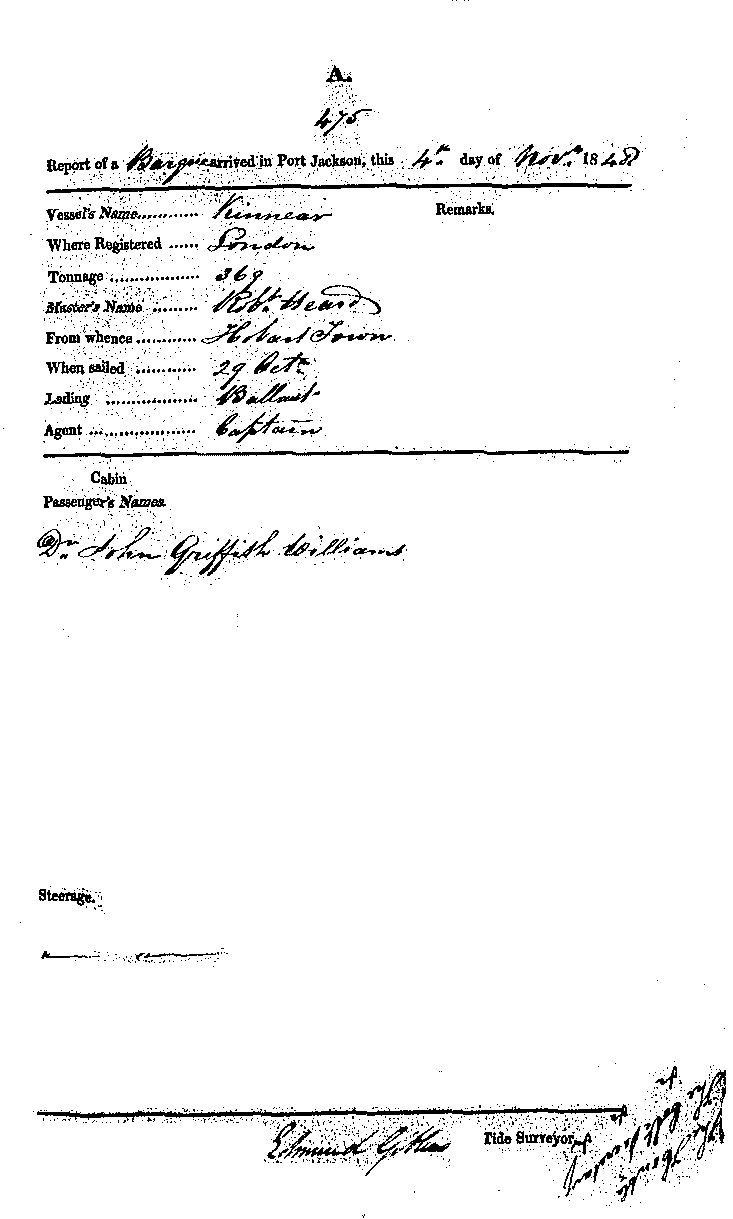 A.
475
Report of a Barque arrived in Port Jackson, this 4th day of Novr. 1848
Vessel's Name........... Kinnear
Remarks.
Where Registered ...... London
Tonnage ................. 369
Master's Name ......... Robt. Heard
From whence............ Hobart Town
When sailed ............ 29 Octr.
Lading .................. Ballast
Agent .................... Captain
Cabin
Passenger's Names.
Dr. John Griffith Williams
Steerage.
Edmund
Tide Surveyor